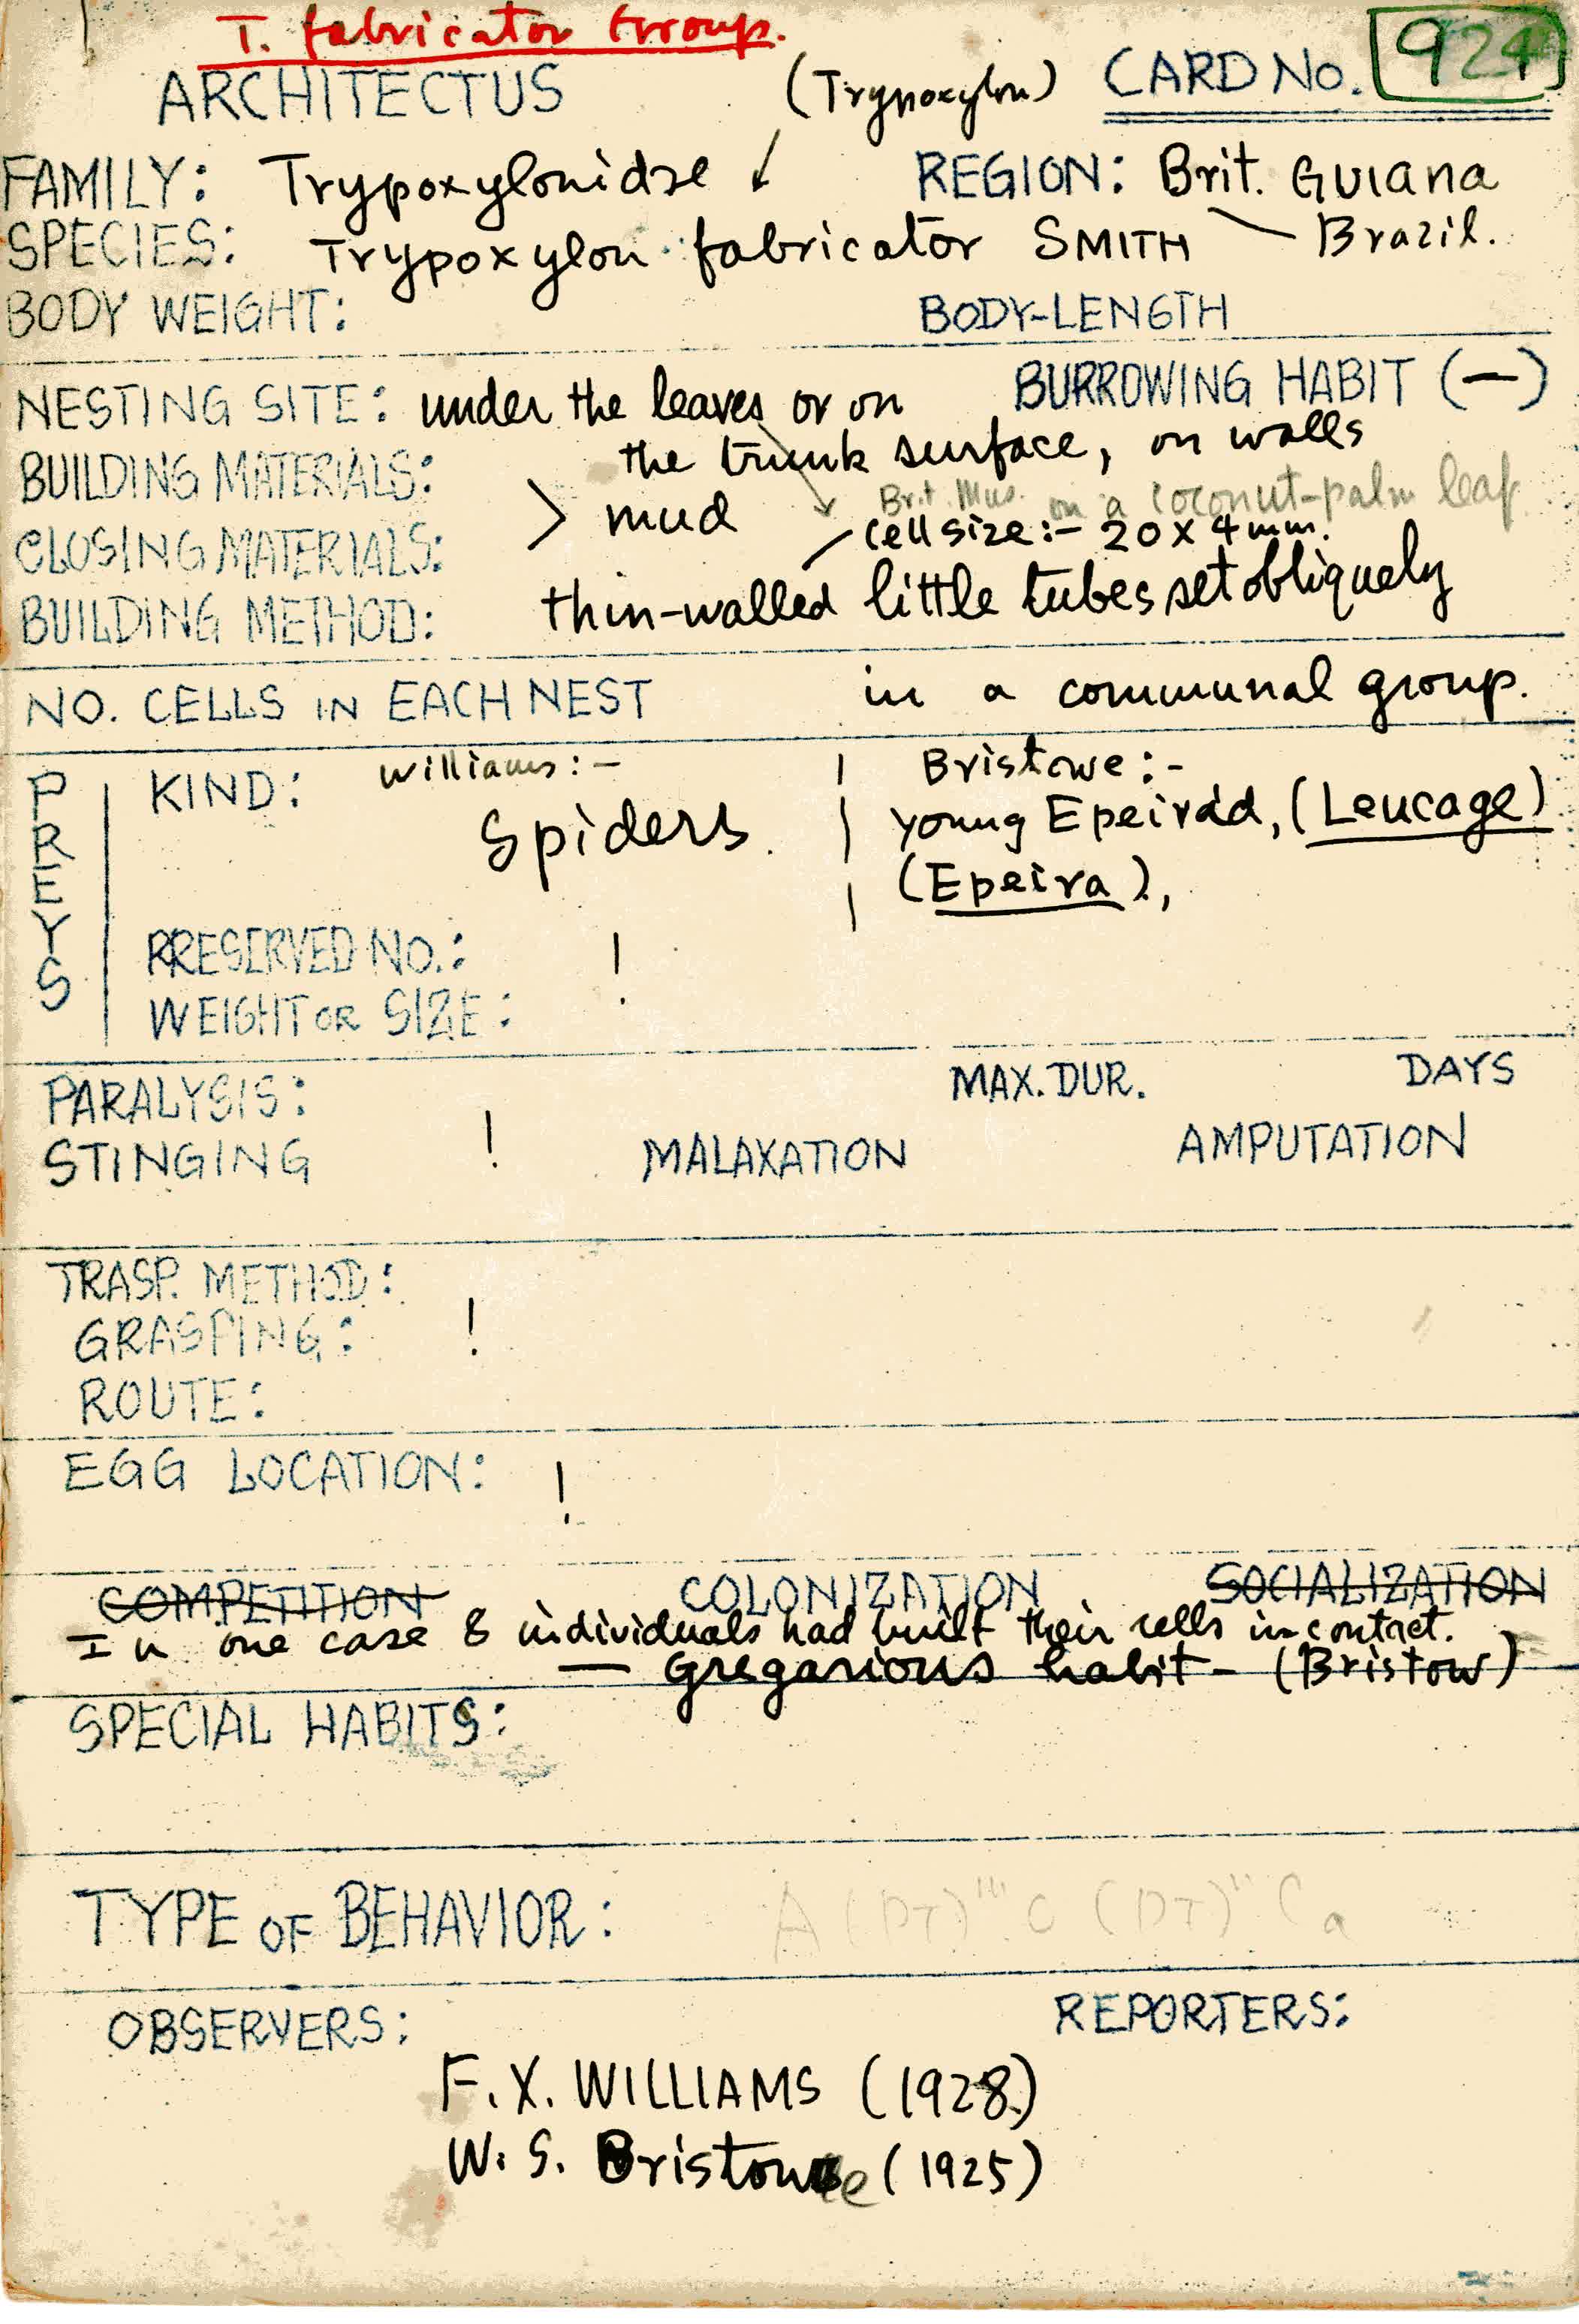 T. fabricator Group.
ARCHITECTUS (Trypoxylon) CARD No. 924
FAMILY: Trypoxylonidae REGION: Brit. Guiana
SPECIES: Trypoxylon fabricator SMITH Brazil.
BODY WEIGHT: BODY-LENGTH
NESTING SITE: under the leaves or on BURROWING HABIT (—)
the trunk surface, on walls
BUILDING MATERIALS: > mud Brit. Mus. on a coconut-palm leaf
CLOSING MATERIALS: cell size:- 20 x 4 mm.
BUILDING METHOD: thin-walled little tubes set obliquely
NO. CELLS IN EACH NEST in a communal group.
PREYS
KIND: Williams:- Bristowe:-
Spiders. young Epeirid, (Leucage)
(Epeira),
PRESERVED NO.: !
WEIGHT OR SIZE:
PARALYSIS: MAX. DUR. DAYS
STINGING ! MALAXATION AMPUTATION
TRASP. METHOD:
GRASPING: !
ROUTE:
EGG LOCATION: !
COMPETITION COLONIZATION SOCIALIZATION
In one case 8 individuals had built their cells in contact.
— Gregarious habit — (Bristow)
SPECIAL HABITS:
TYPE OF BEHAVIOR: A (PT)''' C (PT)'' C a
OBSERVERS: REPORTERS:
F. X. WILLIAMS (1928)
W. S. Bristowe (1925)